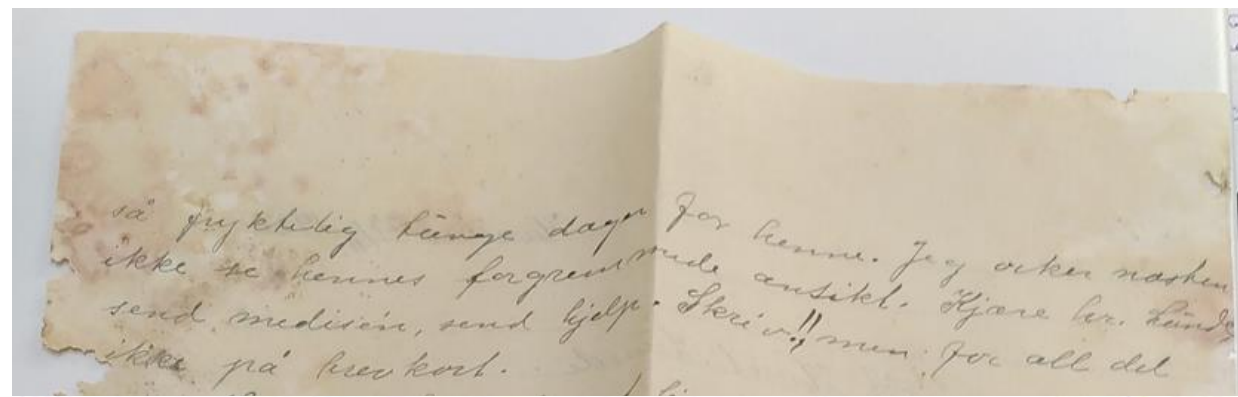 så fryktelig tunge dager for henne. Jeg orker næsten
ikke se hennes forgremmende ansikt. Kjære hr. Lunde,
send medisin, send hjelp. Skriv!! men for all del
ikke på brevkort.